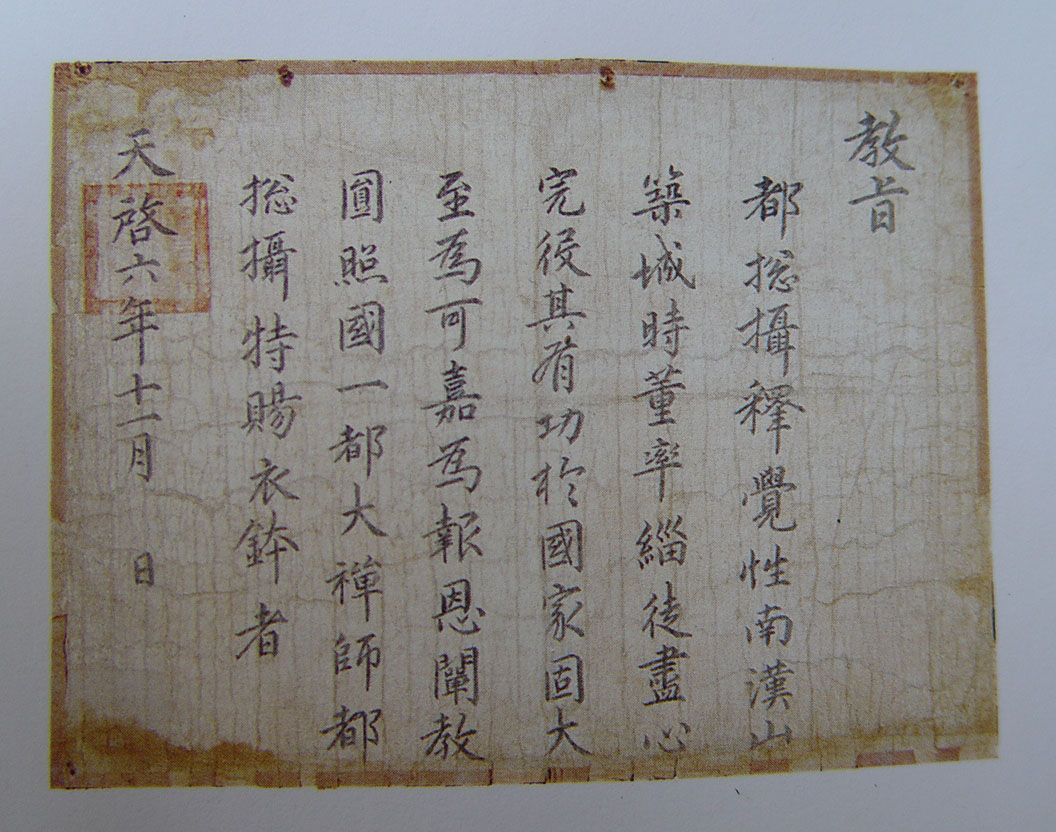 教旨
都揔攝釋覺性南漢山
築城時董率緇徒盡心
完役其有功於國家固大
至爲可嘉爲報恩闡教
圓照國一都大禪師都
揔攝特賜衣鉢者
天啓六年十一月 日